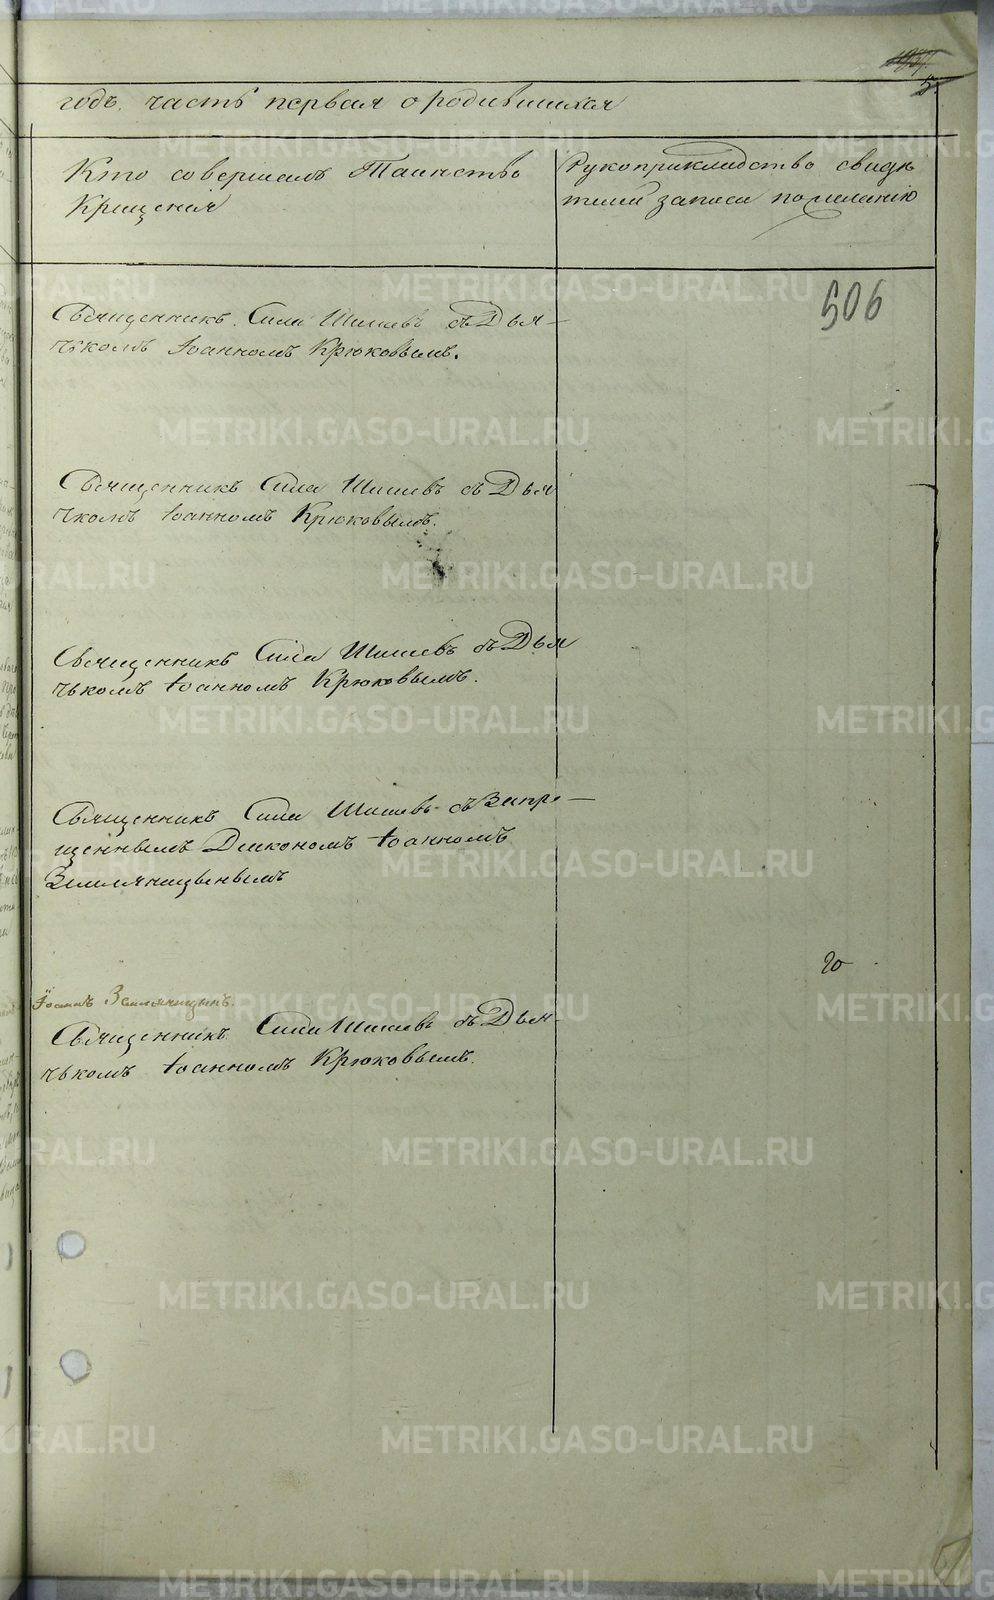 5.
годъ. часть первая о родившихся
Кто совершалъ Таинство
Крещенія
Рукоприкладство свидѣ
телей записи по желанію
506
Священникъ Сила Шишевъ съ Дья-
чкомъ Іоанномъ Крюковымъ.
Священникъ Сила Шишевъ съ Дья
чкомъ Іоанномъ Крюковымъ.
Священникъ Сила Шишевъ съ Дья
чькомъ Іоанномъ Крюковымъ.
Священникъ Сила Шишевъ съ Запре-
щеннымъ Діакономъ Іоанномъ
20
Іоаннъ Земляницынъ.
Священникъ Сила Шишевъ съ Дья-
чькомъ Іоанномъ Крюковымъ.
METRIKI.GASO-URAL.RU